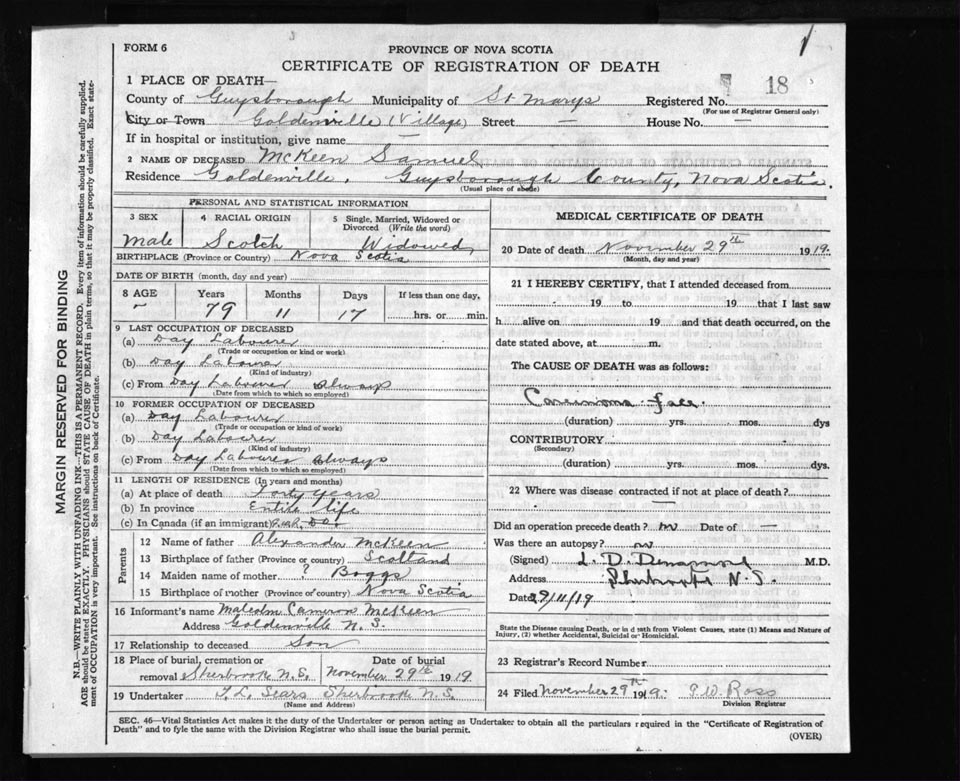 FORM 6
PROVINCE OF NOVA SCOTIA
CERTIFICATE OF REGISTRATION OF DEATH
1 PLACE OF DEATH—
County of Guysborough Municipality of St Marys Registered No. 18
(For use of Registrar General only)
City or Town Goldenville (Village) Street — House No. —
If in hospital or institution, give name —
2 NAME OF DECEASED McKeen Samuel
Residence Goldenville, Guysborough County, Nova Scotia.
(Usual place of abode)
PERSONAL AND STATISTICAL INFORMATION
3 SEX 4 RACIAL ORIGIN 5 Single, Married, Widowed or Divorced (Write the word)
Male Scotch Widowed
BIRTHPLACE (Province or Country) Nova Scotia
DATE OF BIRTH (month, day and year)
8 AGE Years Months Days If less than one day,
79 11 17 hrs. or min.
9 LAST OCCUPATION OF DECEASED
(a) Day Labourer
(Trade or occupation or kind or work)
(b) Day Labourer
(Kind of industry)
(c) From Day Labourer Always
(Date from which to which so employed)
10 FORMER OCCUPATION OF DECEASED
(a) Day Labourer
(Trade or occupation or kind of work)
(b) Day Labourer
(Kind of industry)
(c) From Day Labourer Always
(Date from which to which so employed)
11 LENGTH OF RESIDENCE (In years and months)
(a) At place of death Forty years
(b) In province Entire life
(c) In Canada (if an immigrant) Do.
Parents
12 Name of father Alexander McKeen
13 Birthplace of father (Province or country) Scotland
14 Maiden name of mother ? Boggs
15 Birthplace of mother (Province or country) Nova Scotia
16 Informant's name Malcolm Cameron McKeen
Address Goldenville N. S.
17 Relationship to deceased Son
18 Place of burial, cremation or removal Sherbrook N.S. Date of burial November 29th 1919
19 Undertaker T. L. Sears Sherbrook N.S.
(Name and Address)
MEDICAL CERTIFICATE OF DEATH
20 Date of death November 29th 1919.
(Month, day and year)
21 I HEREBY CERTIFY, that I attended deceased from
19 to 19 that I last saw
h alive on 19 and that death occurred, on the
date stated above, at m.
The CAUSE OF DEATH was as follows:
Carcinoma face.
(duration) yrs. mos. dys
CONTRIBUTORY
(Secondary)
(duration) yrs. mos. dys.
22 Where was disease contracted if not at place of death?
—
Did an operation precede death? no Date of —
Was there an autopsy? no
(Signed) M.D.
Address Sherbrooke N. S.
Date 29/11/19
State the Disease causing Death, or in death from Violent Causes, state (1) Means and Nature of
Injury, (2) whether Accidental, Suicidal or Homicidal.
23 Registrar's Record Number
24 Filed November 29th 1919. Ross
Division Registrar
SEC. 46—Vital Statistics Act makes it the duty of the Undertaker or person acting as Undertaker to obtain all the particulars required in the "Certificate of Registration of
Death" and to fyle the same with the Division Registrar who shall issue the burial permit.
(OVER)
MARGIN RESERVED FOR BINDING
N.B.—WRITE PLAINLY WITH UNFADING INK—THIS IS A PERMANENT RECORD. Every item of information should be carefully supplied.
AGE should be stated EXACTLY. PHYSICIANS should STATE CAUSE OF DEATH in plain terms, so that it may be properly classified. Exact state-
ment of OCCUPATION is very important. See instructions on back of Certificate.